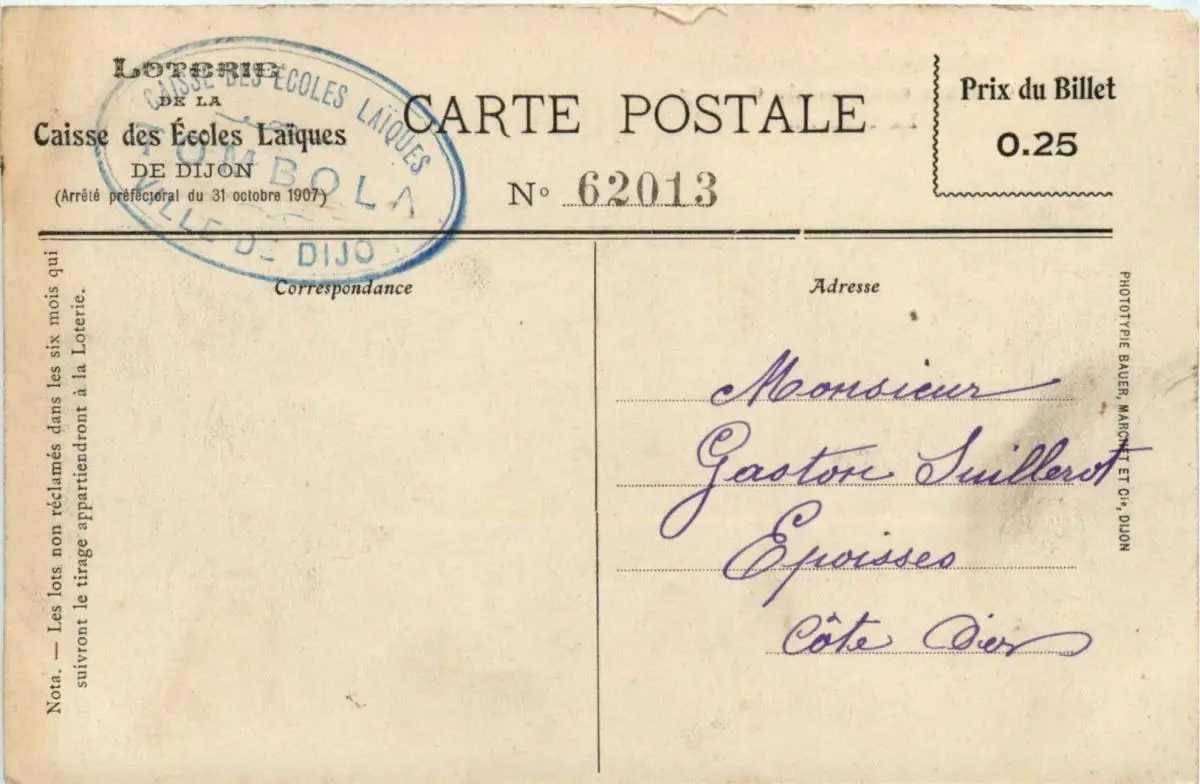 LOTERIE
DE LA
Caisse des Écoles Laïques
DE DIJON
(Arrêté préfectoral du 31 octobre 1907)
CAISSE DES ÉCOLES LAÏQUES
TOMBOLA
VILLE DE DIJO
CARTE POSTALE
N° 62013
Prix du Billet
0.25
Correspondance
Adresse
Nota. — Les lots non réclamés dans les six mois qui
suivront le tirage appartiendront à la Loterie.
Monsieur
Gaston Suillerot
Epoisses
Côte Dor
PHOTOTYPIE BAUER, MARCHET ET Cie, DIJON